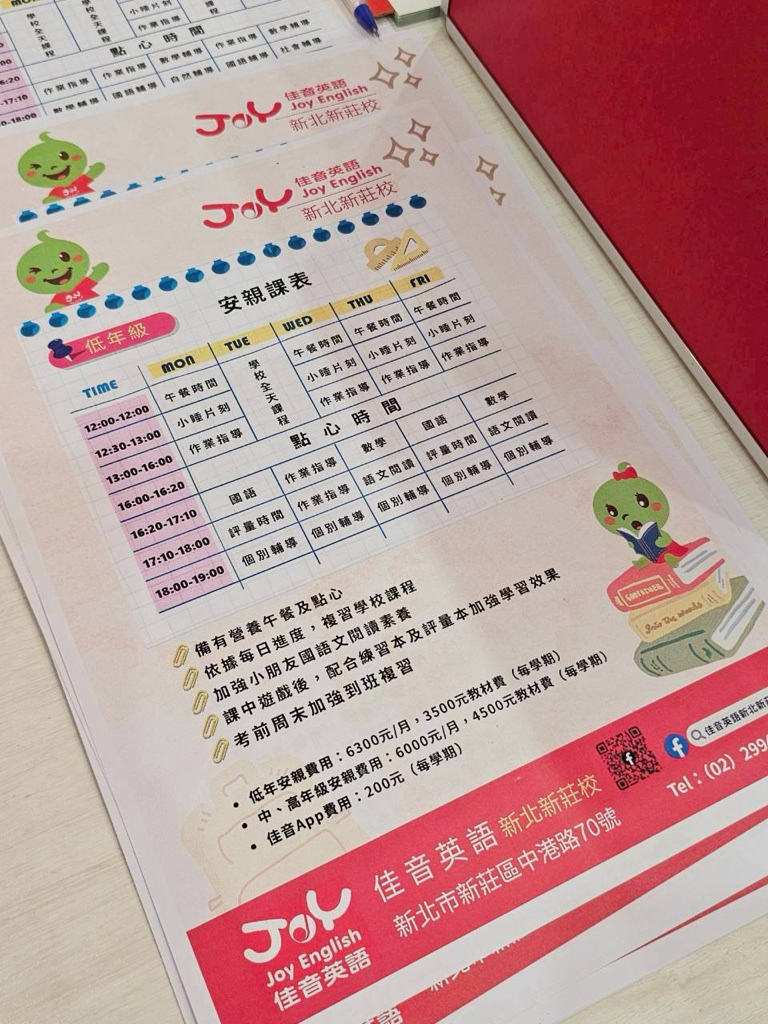 學校全天課程
學校全天課程
小睡片刻
作業指導
點心時間
作業指導 作業指導 數學輔導 作業指導 數學輔導
數學輔導 國語輔導 自然輔導 國語輔導 社會輔導
-17:10
-18:00
JOY 佳音英語
Joy English
新北新莊校
JOY 佳音英語
Joy English
新北新莊校
安親課表
低年級
TIME MON TUE WED THU FRI
12:00-12:00 午餐時間 學校全天課程 午餐時間 午餐時間 午餐時間
12:30-13:00 小睡片刻 小睡片刻 小睡片刻 小睡片刻
13:00-16:00 作業指導 作業指導 作業指導 作業指導
16:00-16:20 點心時間
16:20-17:10 國語 作業指導 數學 國語 數學
17:10-18:00 評量時間 作業指導 語文閱讀 評量時間 語文閱讀
18:00-19:00 個別輔導 個別輔導 個別輔導 個別輔導 個別輔導
備有營養午餐及點心
依據每日進度，複習學校課程
加強小朋友國語文閱讀素養
課中遊戲後，配合練習本及評量本加強學習效果
考前周末加強到班複習
GODFATHER
Into the Woods
• 低年安親費用：6300元/月，3500元教材費（每學期）
• 中、高年級安親費用：6000元/月，4500元教材費（每學期）
• 佳音App費用：200元（每學期）
佳音英語新北新莊
Tel：(02) 299
JOY
Joy English
佳音英語
佳音英語 新北新莊校
新北市新莊區中港路70號